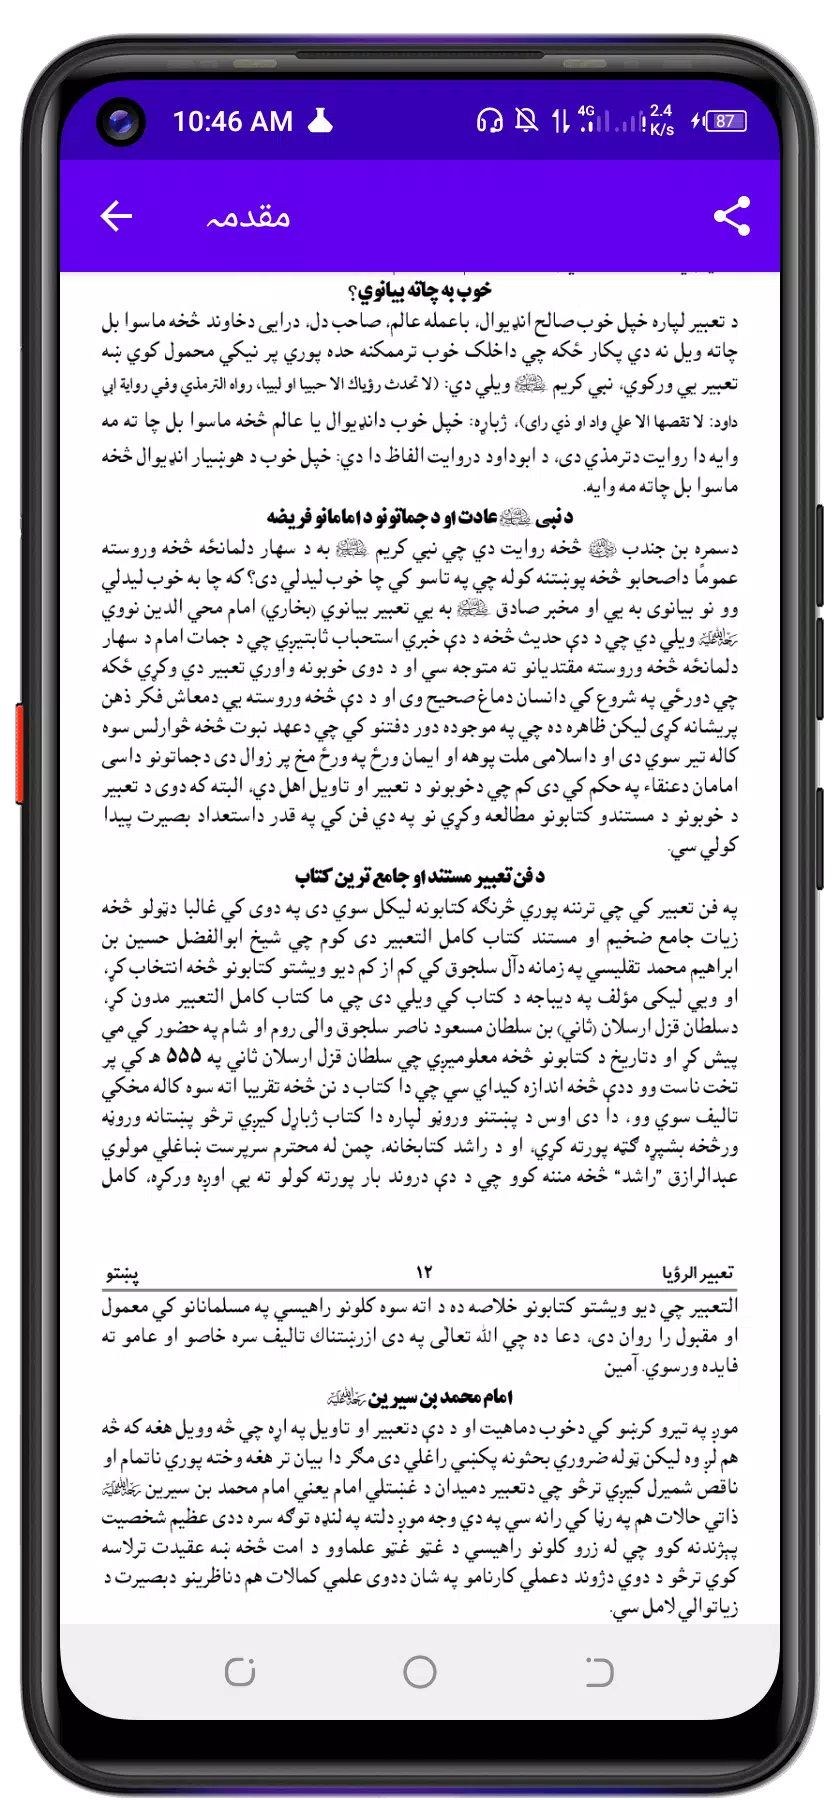 10:46 AM 4G 2.4 K/s 87
مقدمہ
خوب به چاته بيانوي؟
د تعبير لپاره خپل خوب صالح انډيوال، باعمله عالم، صاحب دل، درايی دخاوند څخه ماسوا بل
چاته ويل نه دي پکار ځکه چي داخلک خوب ترممکنه حده پوري پر نيکي محمول کوي ښه
تعبير يي ورکوي، نبي کريم ﷺ ويلي دي: (لا تحدث رؤياك الا حبيبا او لبيبا، رواه الترمذي وفي رواية ابي
داود: لا تقصها الا علي واد او ذي رای)، ژباړه: خپل خوب دانډيوال يا عالم څخه ماسوا بل چا ته مه
وايه دا روايت دترمذي دی، د ابوداود دروايت الفاظ دا دي: خپل خوب د هوښيار انډيوال څخه
ماسوا بل چاته مه وايه.
د نبی ﷺ عادت او د جماتونو د امامانو فريضه
دسمره بن جندب ﷜ څخه روايت دي چي نبي کريم ﷺ به د سهار دلمانځه څخه وروسته
عموماً داصحابو څخه پوښتنه کوله چي په تاسو کي چا خوب ليدلي دی؟ که چا به خوب ليدلي
وو نو بيانوی به يي او مخبر صادق ﷺ به يي تعبير بيانوي (بخاري) امام محي الدين نووي
رحمة الله عليه ويلي دي چي د دې حديث څخه د دې خبري استحباب ثابتيږي چي د جمات امام د سهار
دلمانځه څخه وروسته مقتديانو ته متوجه سي او د دوی خوبونه واوري تعبير دي وکړي ځکه
چي دورځي په شروع کي دانسان دماغ صحيح وی او د دې څخه وروسته يي دمعاش فکر ذهن
پريشانه کړی ليکن ظاهره ده چي په موجوده دور دفتنو کي چي دعهد نبوت څخه څوارلس سوه
کاله تير سوي دی او داسلامی ملت پوهه او ايمان ورځ په ورځ مخ پر زوال دی دجماتونو داسی
امامان دعنقاء په حکم کي دی کم چي دخوبونو د تعبير او تاويل اهل دي، البته که دوی د تعبير
د خوبونو د مستندو کتابونو مطالعه وکړي نو په دي فن کي په قدر داستعداد بصيرت پيدا
کولي سي.
د فن تعبير مستند او جامع ترين کتاب
په فن تعبير کي چي ترننه پوري څرنګه کتابونه ليکل سوي دی په دوی کي غالبا دټولو څخه
زيات جامع ضخيم او مستند کتاب کامل التعبير دی کوم چي شيخ ابوالفضل حسين بن
ابراهيم محمد تقليسي په زمانه دآل سلجوق کي کم از کم ديو ويشتو کتابونو څخه انتخاب کړ،
او ويي ليکی مؤلف په ديباجه د کتاب کي ويلي دی چي ما کتاب کامل التعبير مدون کړ،
دسلطان قزل ارسلان (ثاني) بن سلطان مسعود ناصر سلجوق والی روم او شام په حضور کي مي
پيش کړ او دتاريخ د کتابونو څخه معلوميږي چي سلطان قزل ارسلان ثاني په ۵۵۵ هـ کي پر
تخت ناست وو ددې څخه اندازه کيدای سي چي دا کتاب د نن څخه تقريبا اته سوه کاله مخکي
تاليف سوي وو، دا دی اوس د پښتنو وروڼو لپاره دا کتاب ژباړل کيږي ترڅو پښتانه وروڼه
ورڅخه بشپړه ګټه پورته کړي، او د راشد کتابخانه، چمن له محترم سرپرست ښاغلي مولوي
عبدالرازق ”راشد“ څخه مننه کوو چي د دې دروند بار پورته کولو ته يې اوږه ورکړه، کامل
تعبير الرؤيا ۱۲ پښتو
التعبير چي ديو ويشتو کتابونو خلاصه ده د اته سوه کلونو راهيسي په مسلمانانو کي معمول
او مقبول را روان دی، دعا ده چي الله تعالٰی په دی ازرښتناك تاليف سره خاصو او عامو ته
فايده ورسوي. آمين
امام محمد بن سيرين رحمة الله عليه
موږ په تيرو کرښو کي دخوب دماهيت او د دې دتعبير او تاويل په اړه چي څه وويل هغه که څه
هم لږ وه ليکن ټوله ضروري بحثونه پکښي راغلي دی مګر دا بيان تر هغه وخته پوري ناتمام او
ناقص شميرل کيږي ترڅو چي دتعبير دميدان د غښتلي امام يعني امام محمد بن سيرين رحمة الله عليه
ذاتي حالات هم په رڼا کي رانه سي په دي وجه موږ دلته په لنډه توګه سره ددی عظيم شخصيت
پېژندنه کوو چي له زرو کلونو راهيسي د غټو غټو علماوو د امت څخه ښه عقيدت ترلاسه
کوي ترڅو د دوي دژوند دعملي کارنامو په شان ددوی علمي کمالات هم دناظرينو دبصيرت د
زياتوالي لامل سي.